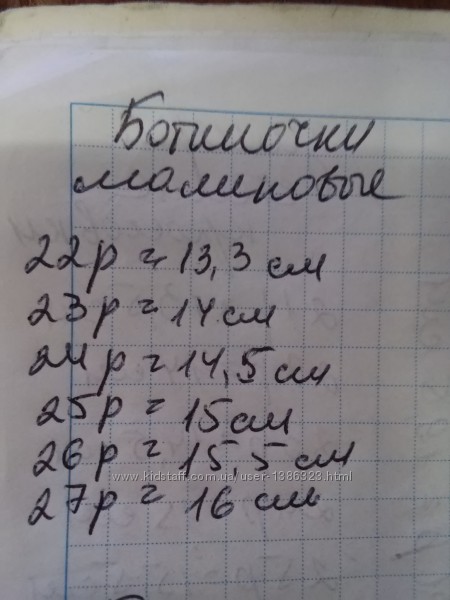 Ботиночки
малиновые
22р = 13,3 см
23р = 14 см
24р = 14,5 см
25р = 15 см
26р = 15,5 см
www.kidstaff.com.ua/user-1386323.html
27р = 16 см